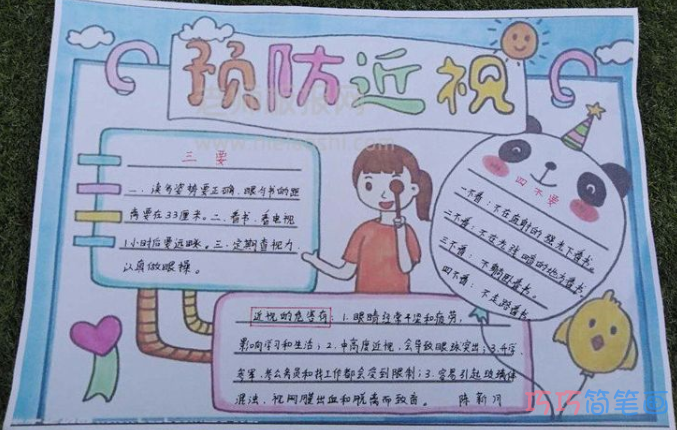 预防近视
三要
一、读书姿势要正确，眼与书的距
离要在33厘米。二、看书、看电视
1小时后要远眺。三、定期查视力，
认真做眼操。
四不要
一不看：不在直射的强光下看书。
二不看：不在光线暗的地方看书。
三不看：不躺卧看书。
四不看：不走路看书
近视的危害有：1.眼睛经常干涩和疲劳，
影响学习和生活；2.中高度近视，会导致眼球突出；3.升学、
参军、考公务员和找工作都会受到限制；3.容易引起玻璃体
混浊、视网膜出血和脱离而致盲。
巧巧简笔画